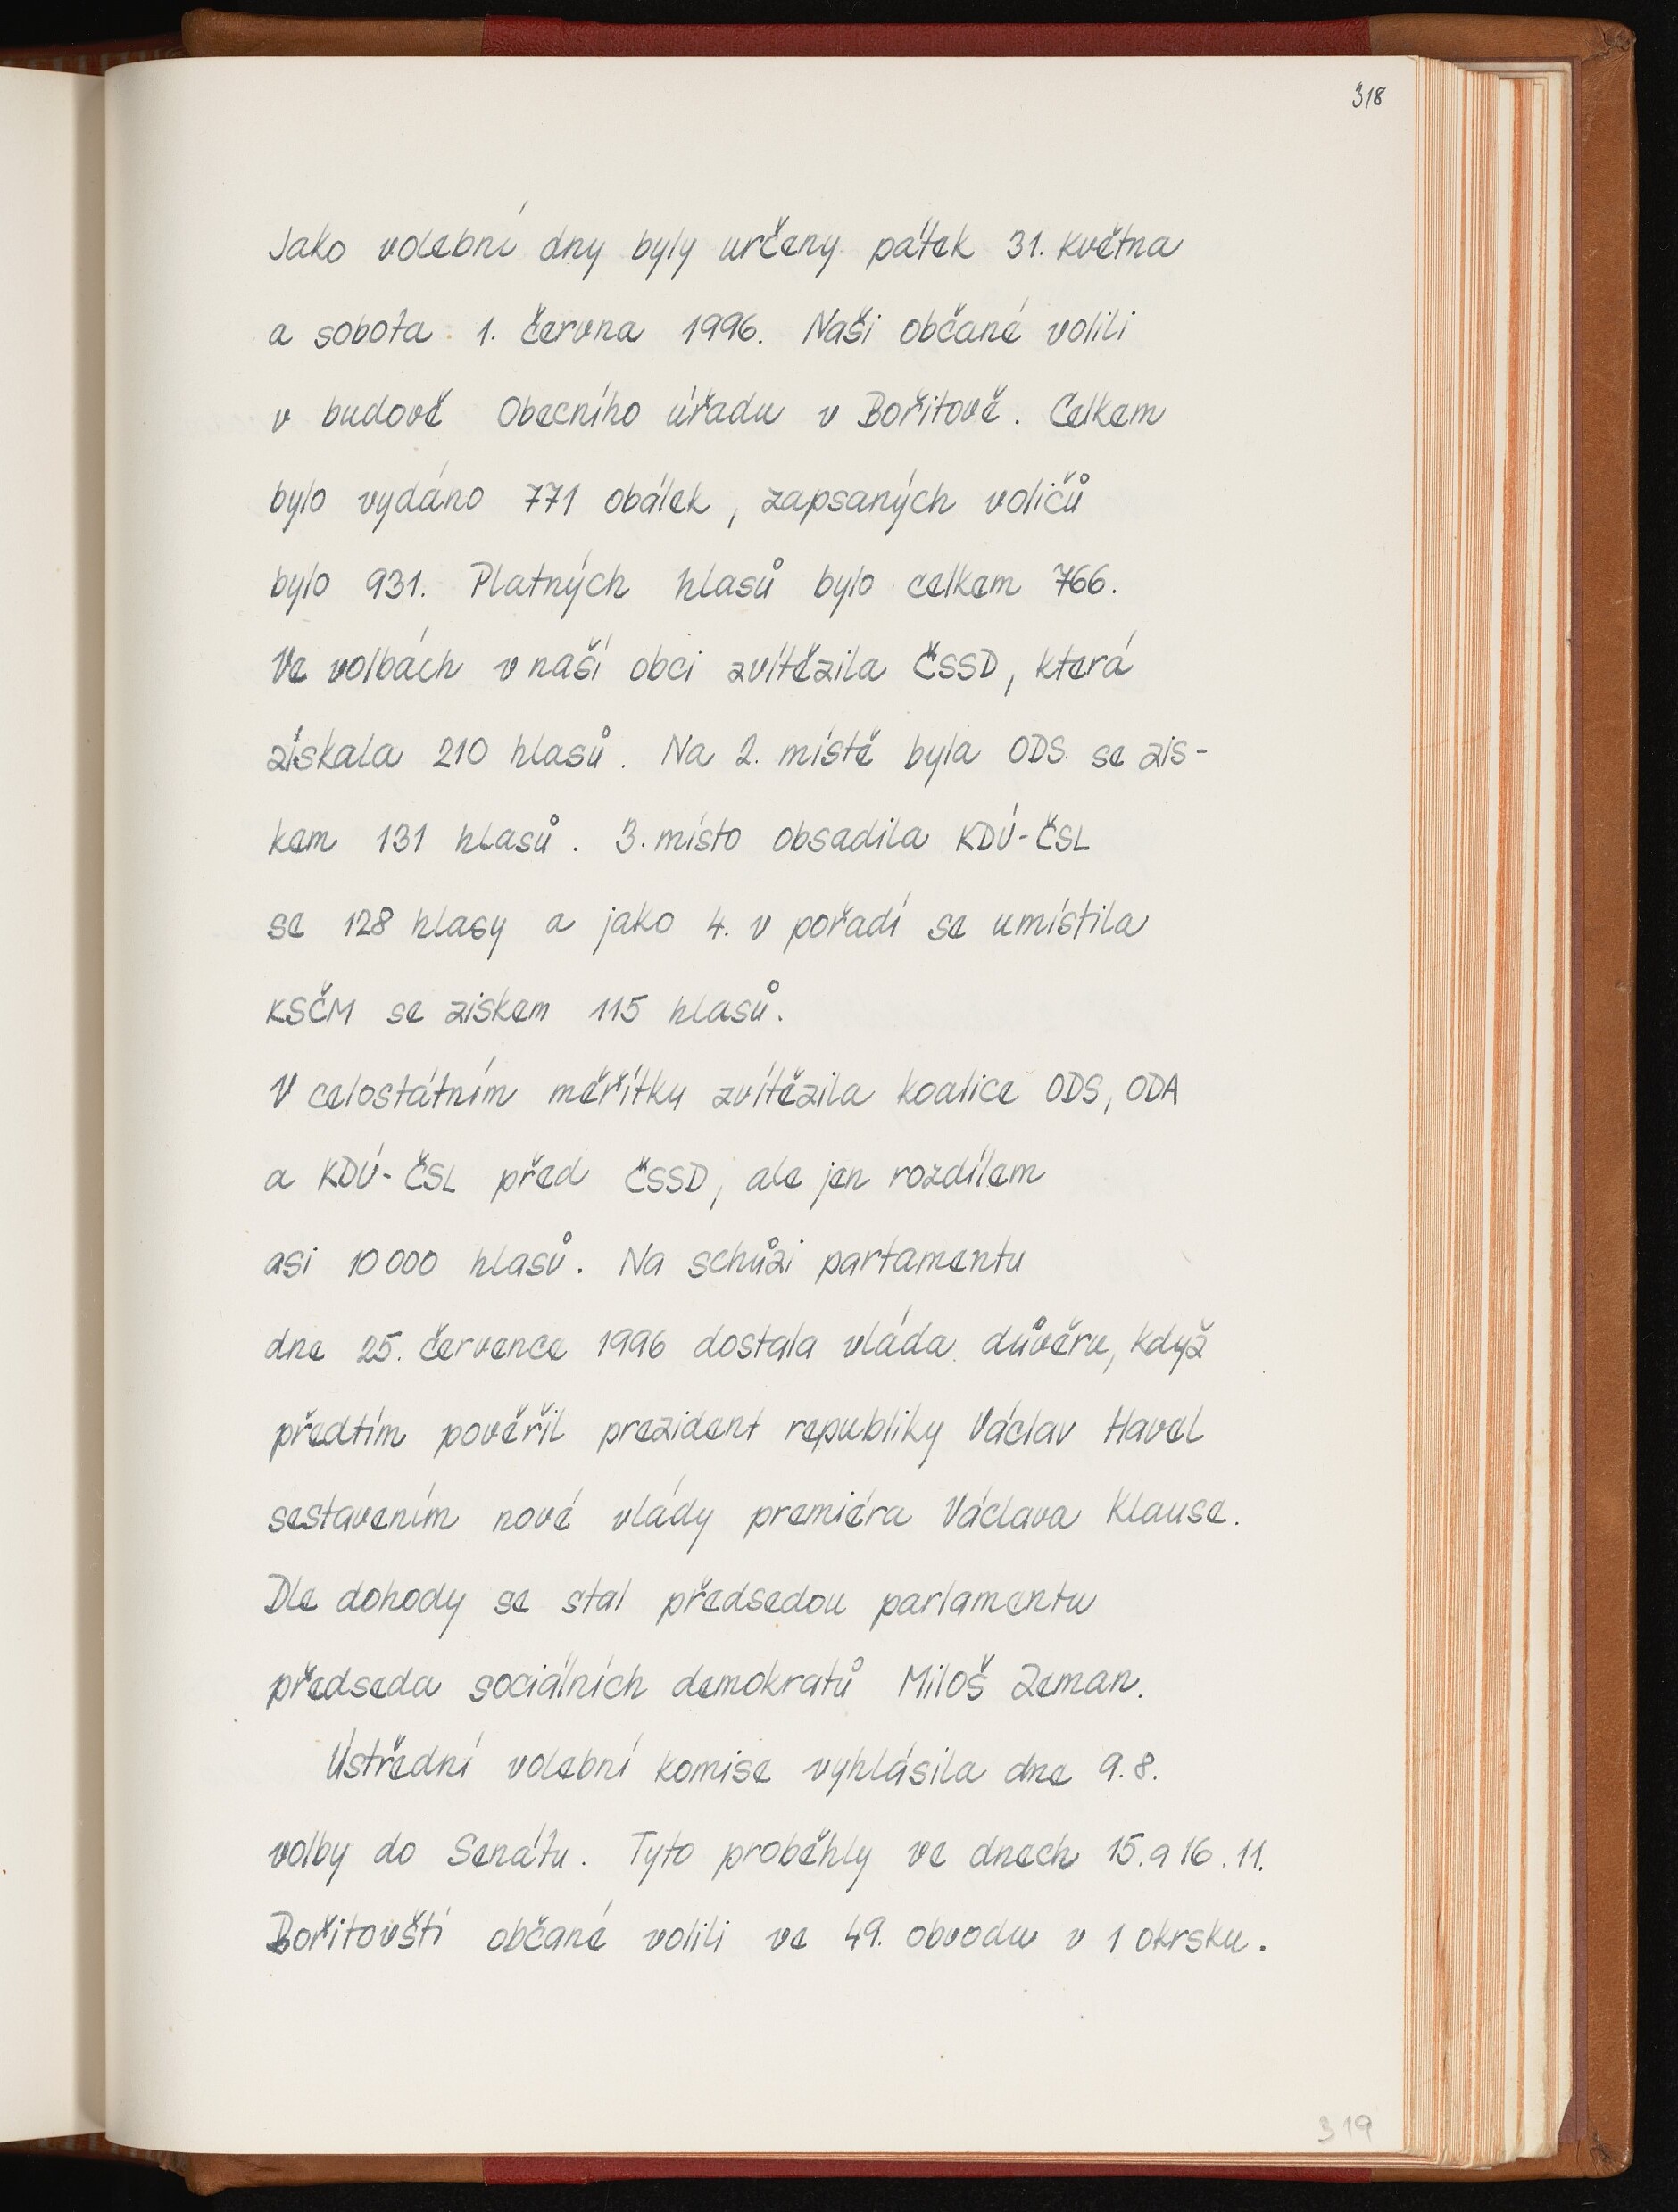 318
Jako volební dny byly určeny pátek 31. května
a sobota 1. června 1996. Naši občané volili
v budově Obecního úřadu v Bořitově. Celkem
bylo vydáno 771 obálek, zapsaných voličů
bylo 931. Platných hlasů bylo celkem 766.
Ve volbách v naší obci zvítězila ČSSD, která
získala 210 hlasů. Na 2. místě byla ODS se zis-
kem 131 hlasů. 3. místo obsadila KDÚ-ČSL
se 128 hlasy a jako 4. v pořadí se umístila
KSČM se ziskem 115 hlasů.
V celostátním měřítku zvítězila koalice ODS, ODA
a KDÚ-ČSL před ČSSD, ale jen rozdílem
asi 10 000 hlasů. Na schůzi partamentu
dne 25. července 1996 dostala vláda důvěru, když
předtím pověřil prezident republiky Václav Havel
sestavením nové vlády premiéra Václava Klause.
Dle dohody se stal předsedou parlamentu
předseda sociálních demokratů Miloš Zeman.
Ústřední volební komise vyhlásila dne 9. 8.
volby do Senátu. Tyto proběhly ve dnech 15. a 16. 11.
Bořitovští občané volili ve 49. obvodu v 1 okrsku.
319